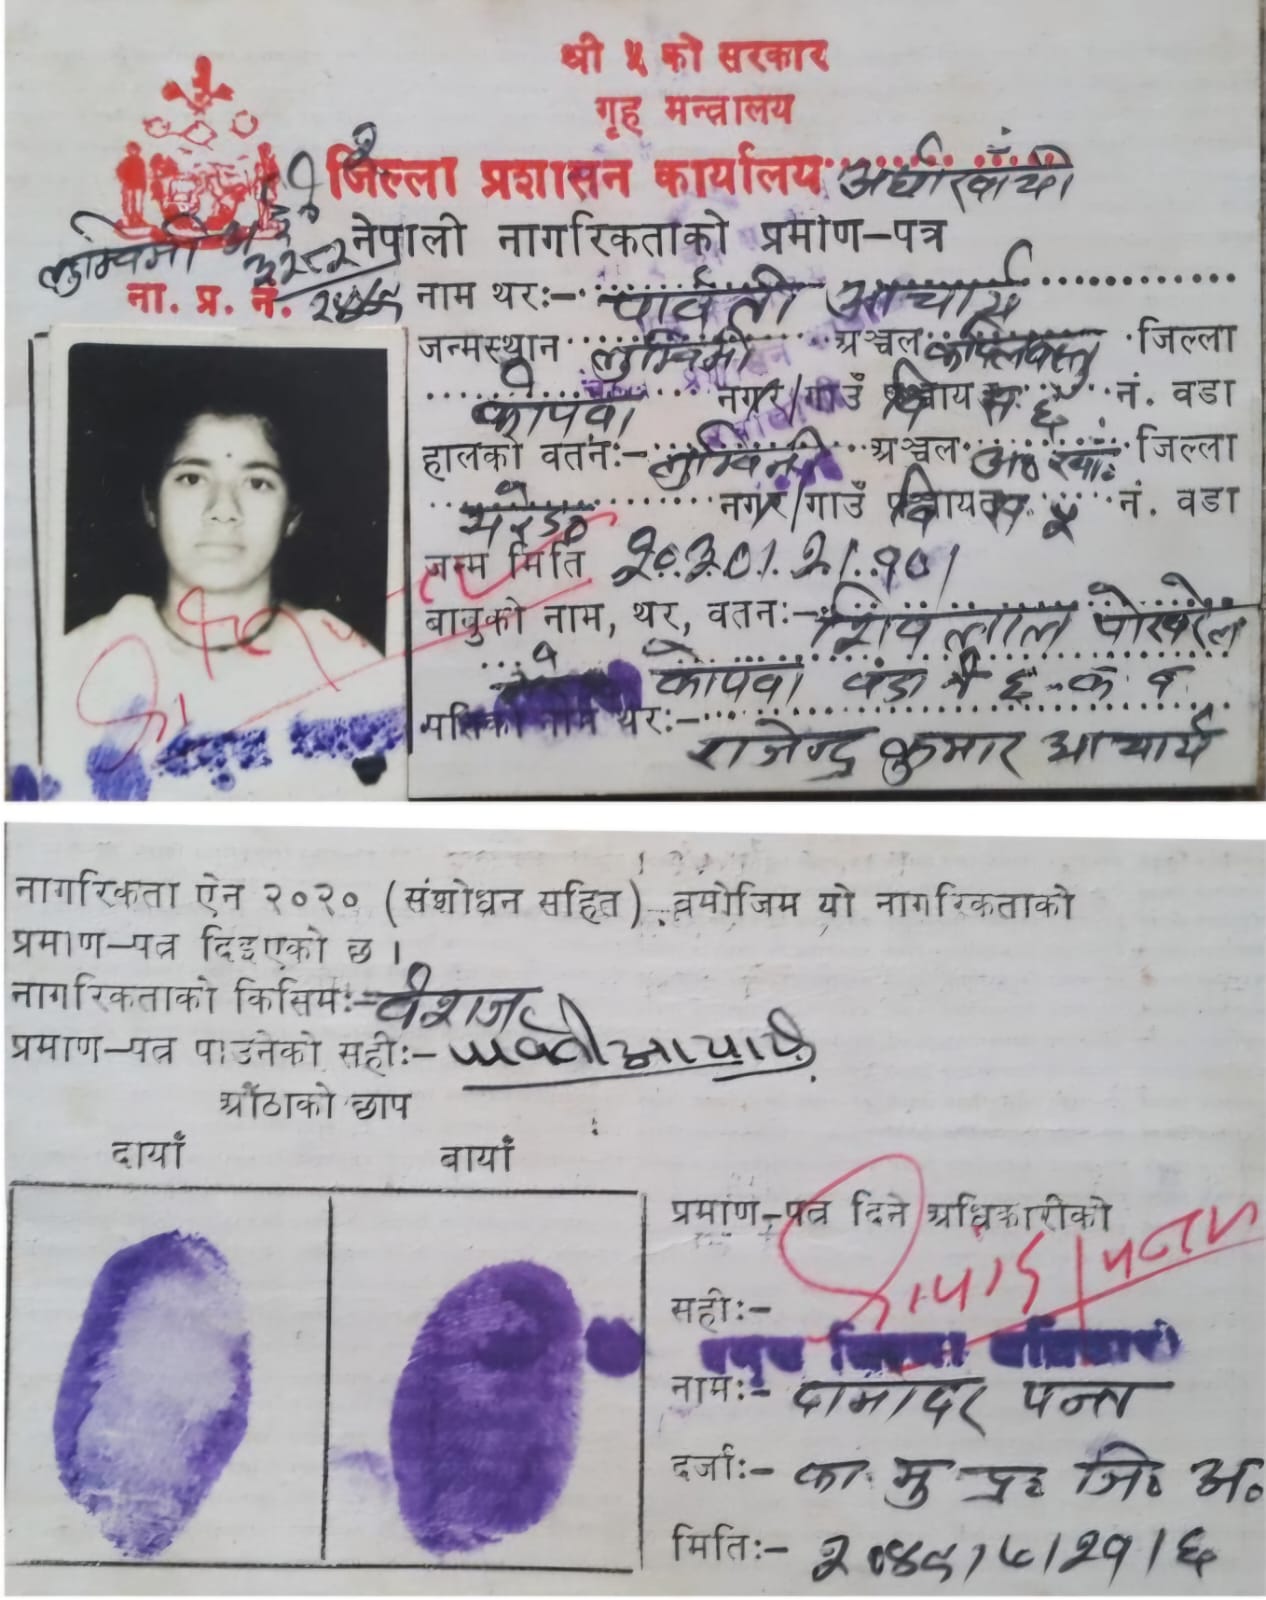 श्री ५ को सरकार
गृह मन्त्रालय
जिल्ला प्रशासन कार्यालय अर्घाखाँची
नेपाली नागरिकताको प्रमाण-पत्र
लुम्बिनी
ना. प्र. नं.
नाम थरः- पार्वती आचार्य
जन्मस्थान लुम्बिनी अञ्चल कपिलवस्तु जिल्ला
कोपवा नगर/गाउँ नं. वडा ६
हालको वतनः- लुम्बिनी अञ्चल जिल्ला
नगर/गाउँ नं. वडा ५
जन्म मिति
बाबुको नाम, थर, वतनः- शिवलाल पोखरेल
कोपवा वडा नं ६ क व
पतिको नाम थरः-
राजेन्द्र कुमार आचार्य
नागरिकता ऐन २०२० (संशोधन सहित) बमोजिम यो नागरिकताको
प्रमाण-पत्र दिइएको छ ।
नागरिकताको किसिमः- वंशज
प्रमाण-पत्र पाउनेको सहीः- पार्वती आचार्य
औंठाको छाप
दायाँ बायाँ
प्रमाण-पत्र दिने अधिकारीको
सहीः-
प्रमुख जिल्ला अधिकारी
नामः- दामोदर पन्त
दर्जाः- का. मु. प्र. जि. अ.
मितिः- २०४९।५।२१।६